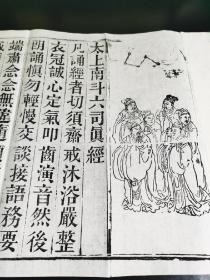 太上南斗六司真經
凡誦經者切須齋戒沐浴嚴整
衣冠誠心定氣叩齒演音然後
朗誦慎勿輕慢交談接語務要
端肅念念無